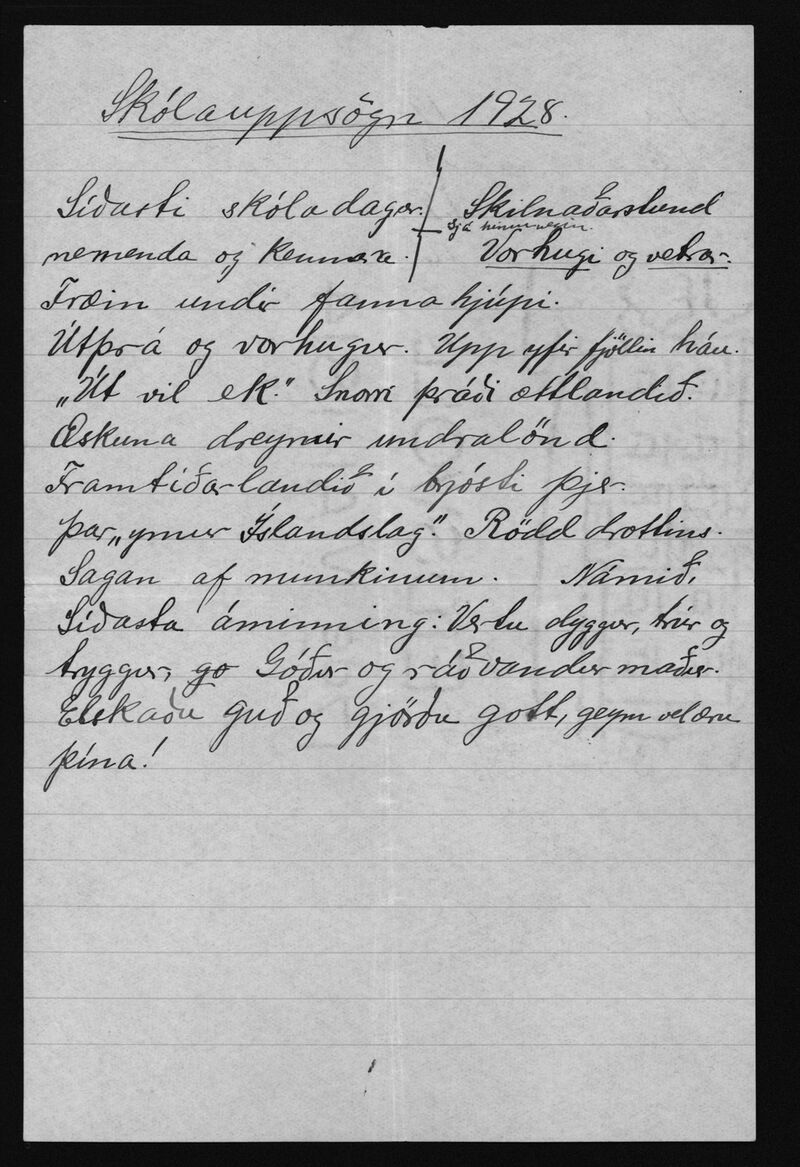 Skólauppsögn 1928.
Síðasti skóladagur. / Skilnaðarstund
sjá hinumegin.
nemenda og kennara. / Vorhugi og vetrar.
Fræin undir fannahjúpi.
Útþrá og vorhugur. Upp yfir fjöllin háu.
„Út vil ek." Snorri þráði ættlandið.
Æskuna dreymir undralönd.
Framtíðarlandið í brjósti þjer.
Þar „ymur Íslandslag". Rödd drottins.
Sagan af munkinum. Námið.
Síðasta áminning: Vertu dyggur, trúr og
tryggur, go Góður og ráðvandur maður.
Elskaðu guð og gjörðu gott, geym vel æru
þína!